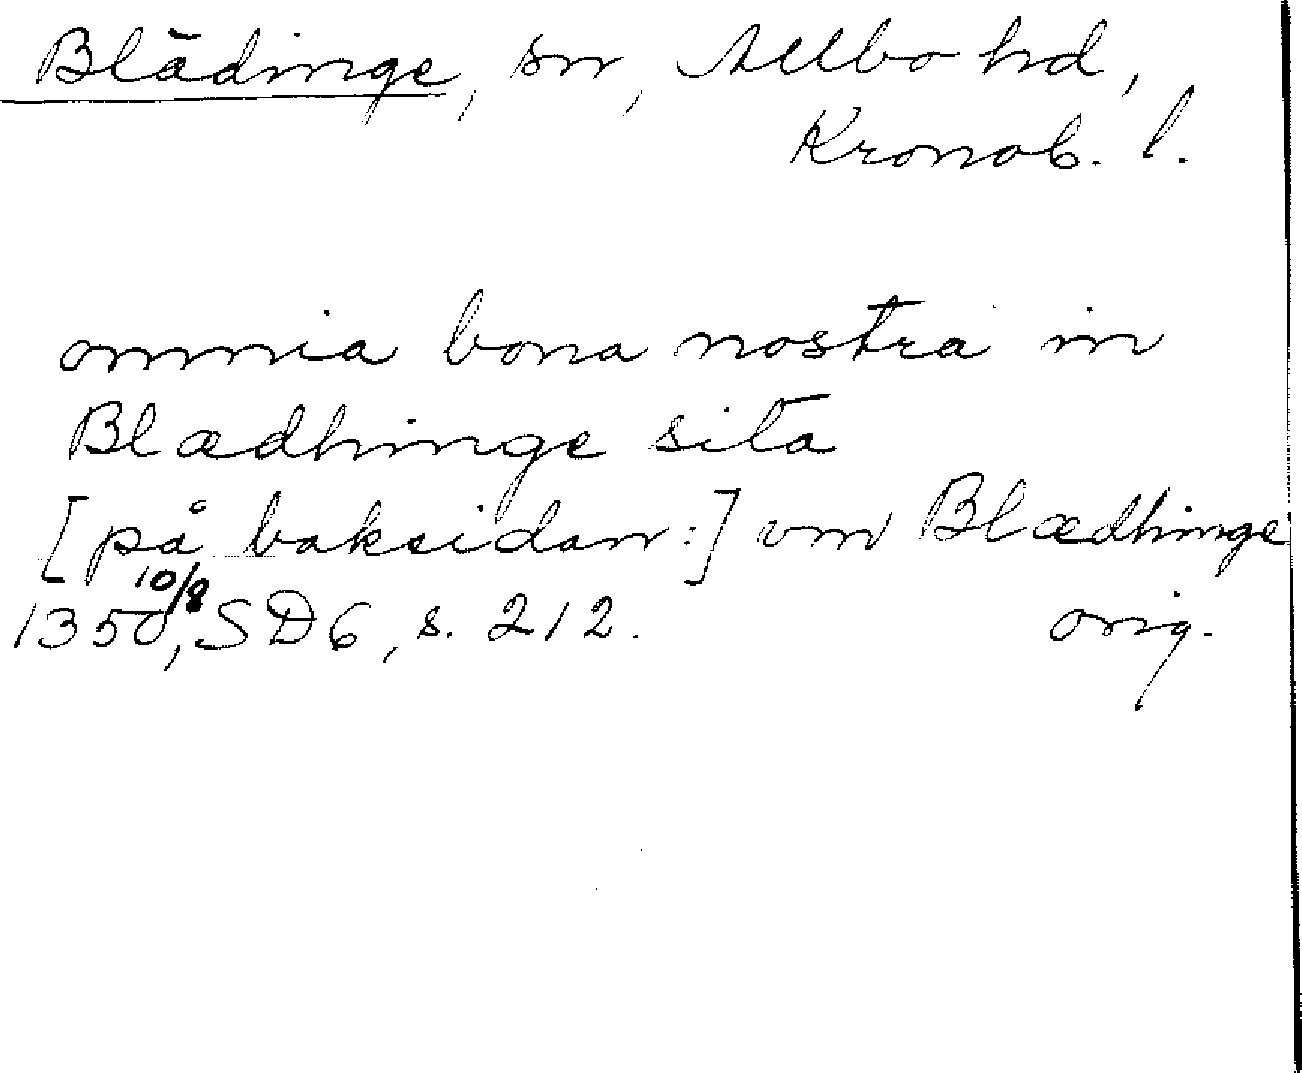 Blädinge, sn, Allbo hd,
Kronob. l.
omnia bona nostra in
Blædhinge sita
[på baksidan:] vm Blædhinge
1350 10/8, SD 6, s. 212. orig.